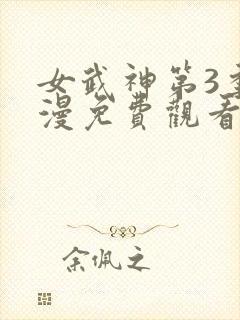 女武神第3
漫免費觀看
余佩之